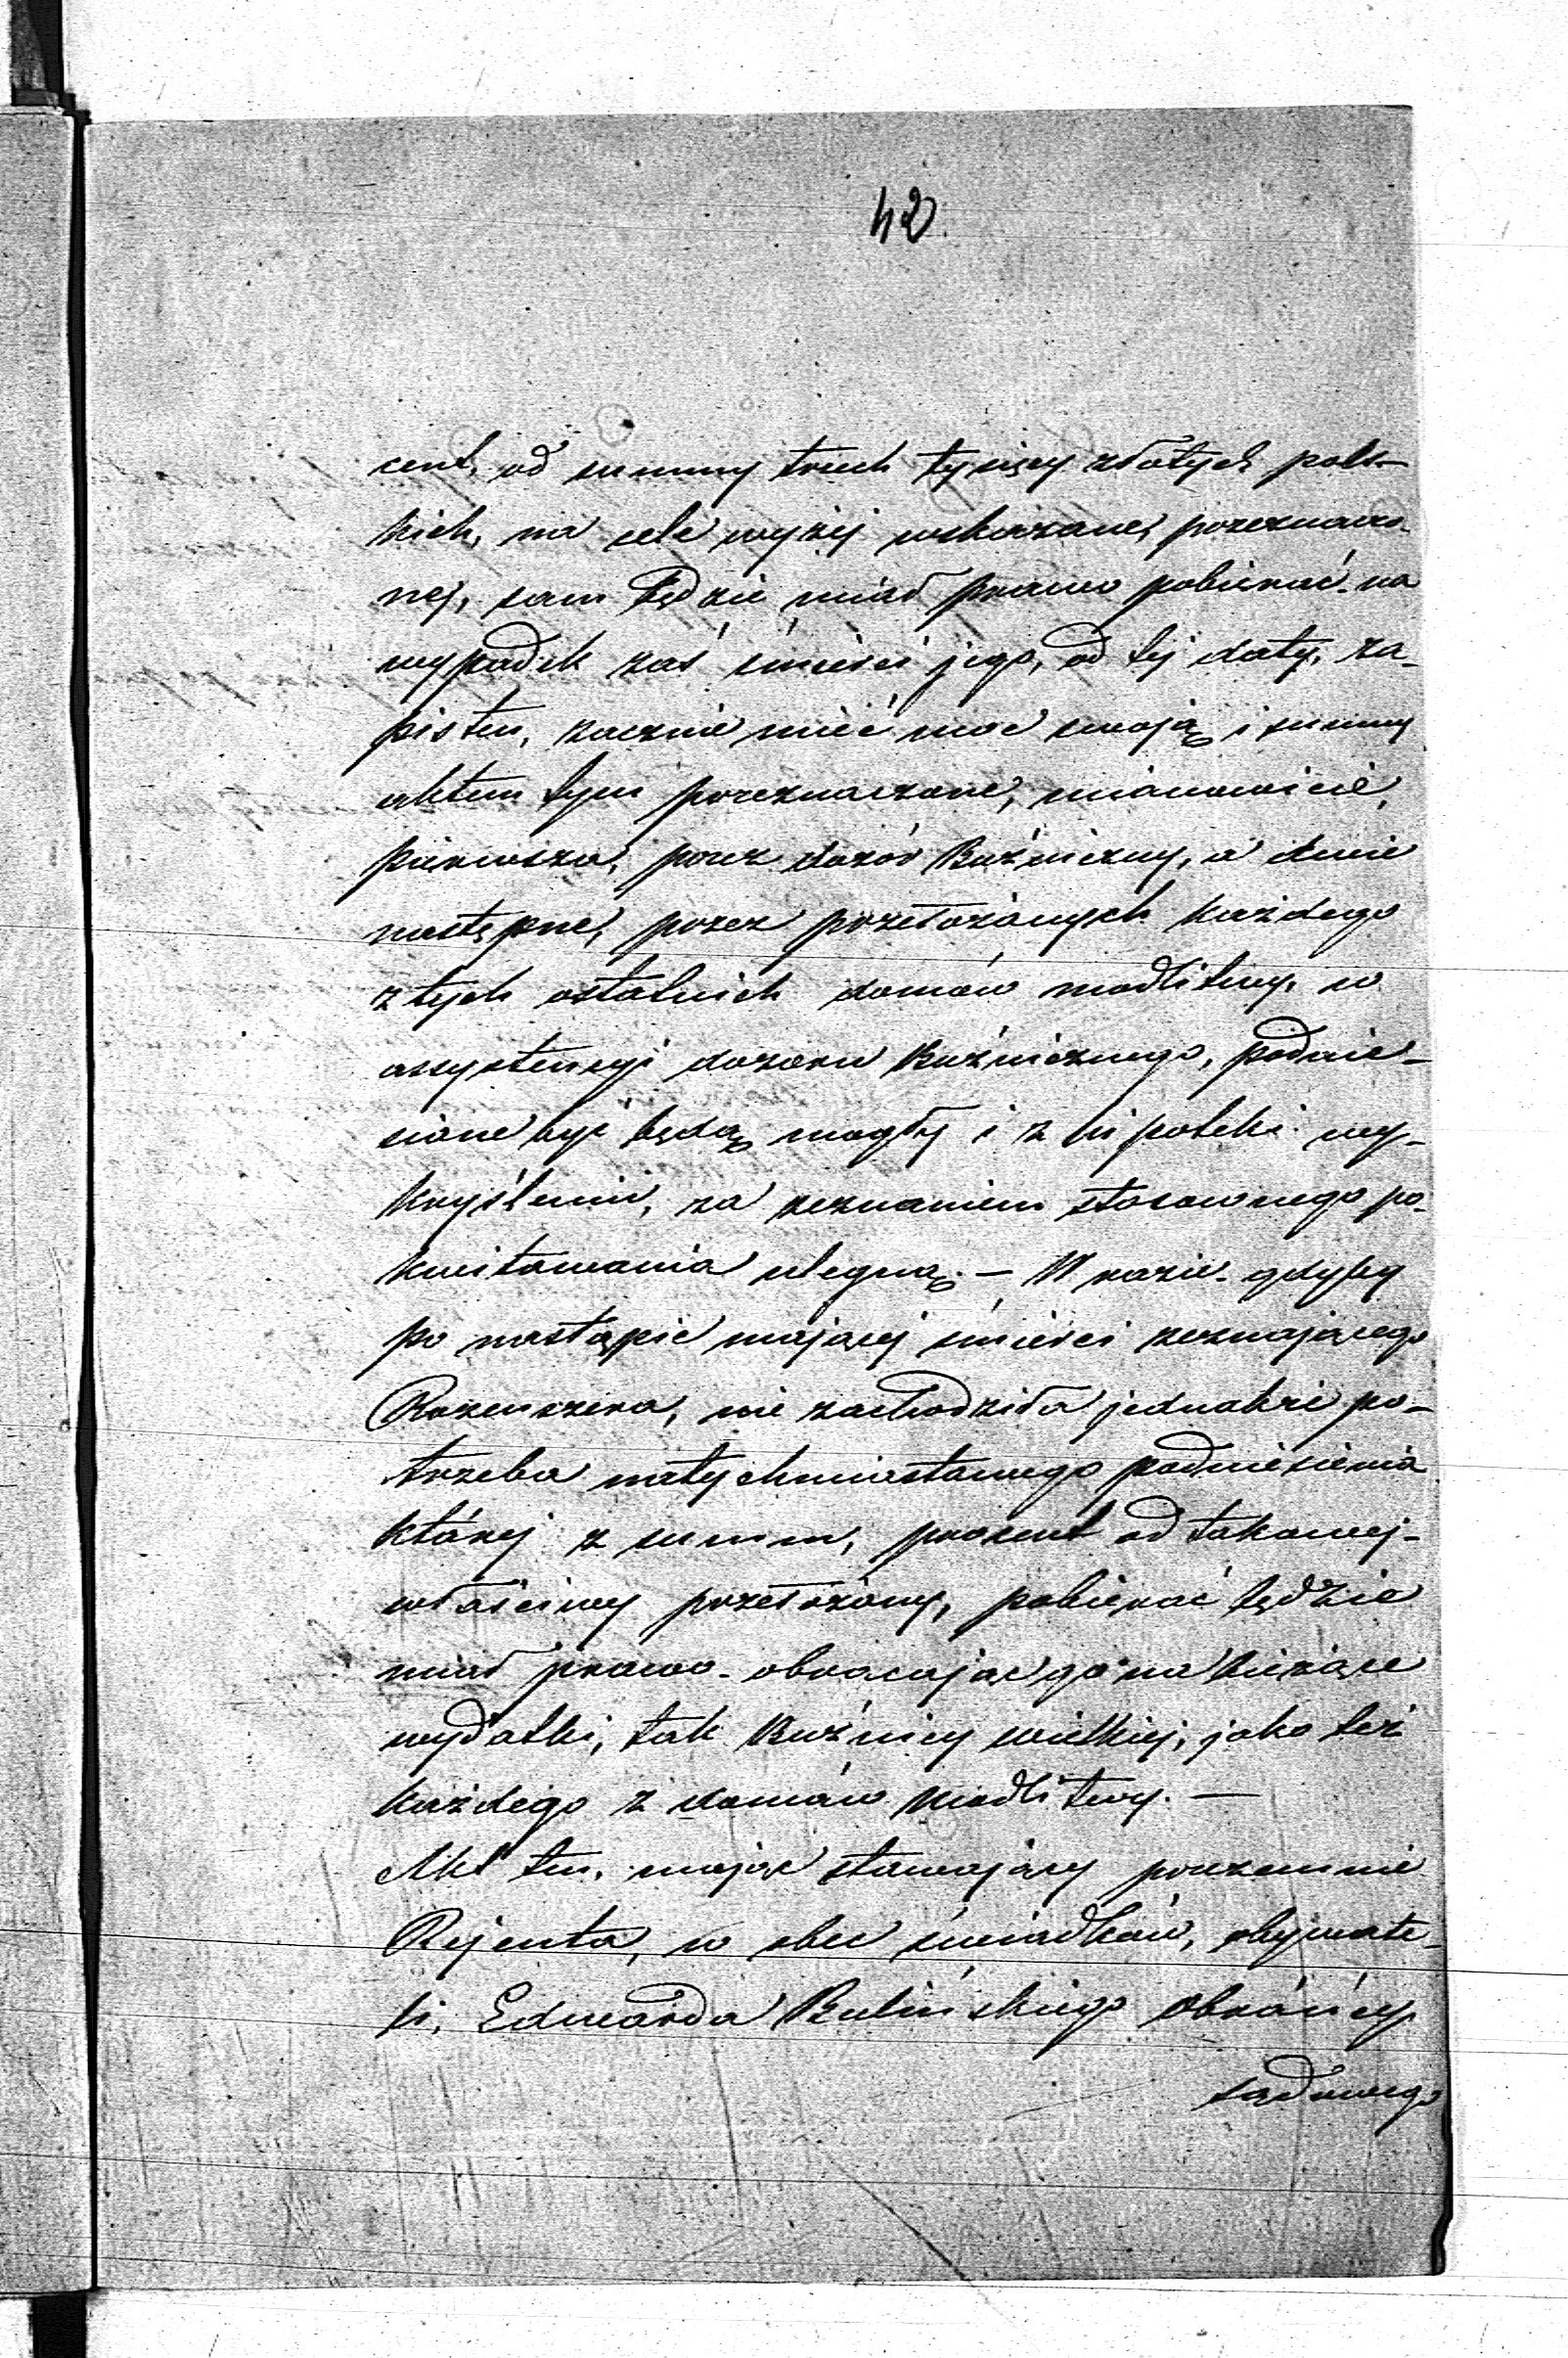 42.
cent, od summy trzech tysięcy złotych pols-
kich, na cele wyżej wskazane, przeznaczo-
nej, sam będzie miał prawo pobierać na
wypadek zaś śmierci jego, od tej daty, za-
pis ten, zacznie mieć moc swoją i summy
aktem tym przeznaczone, mianowicie,
pierwsza, przez dozór Bóżniczny, a dwie
następne, przez przełożonych każdego
z tych ostatnich domów modlitwy, w
assystencyi dozoru Bóżnicznego, podnie-
sione być będą mogły i z hipoteki wy-
kryśleniu, za zeznaniem stosownego po-
kwitowania ulegną. — W razie gdyby
po nastąpić mającej śmierci zeznającego
Rozenszera, nie zachodziła jednakże po-
trzeba natychmiastowego podniesienia
której z summ, procent od takowej-
właściwy przełożony, pobierać będzie
miał prawo obracając go na bieżące
wydatki, tak Bóźnicy wielkiej, jako też
każdego z domów modlitwy. —
Akt ten, mając stawający przezemnie
Rejenta, w obec świadków, obywate-
li, Edwarda Rulińskiego Obrońcy
sądowego